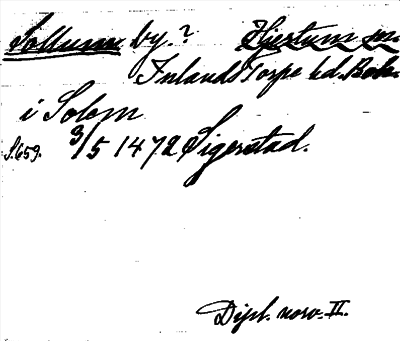 Sollum by.? Hjertum sn.
Inlands Torpe hd. Boh.
i Solom
S.659. 3/5 1472 Sigerstad.
Dipl. norv. II.